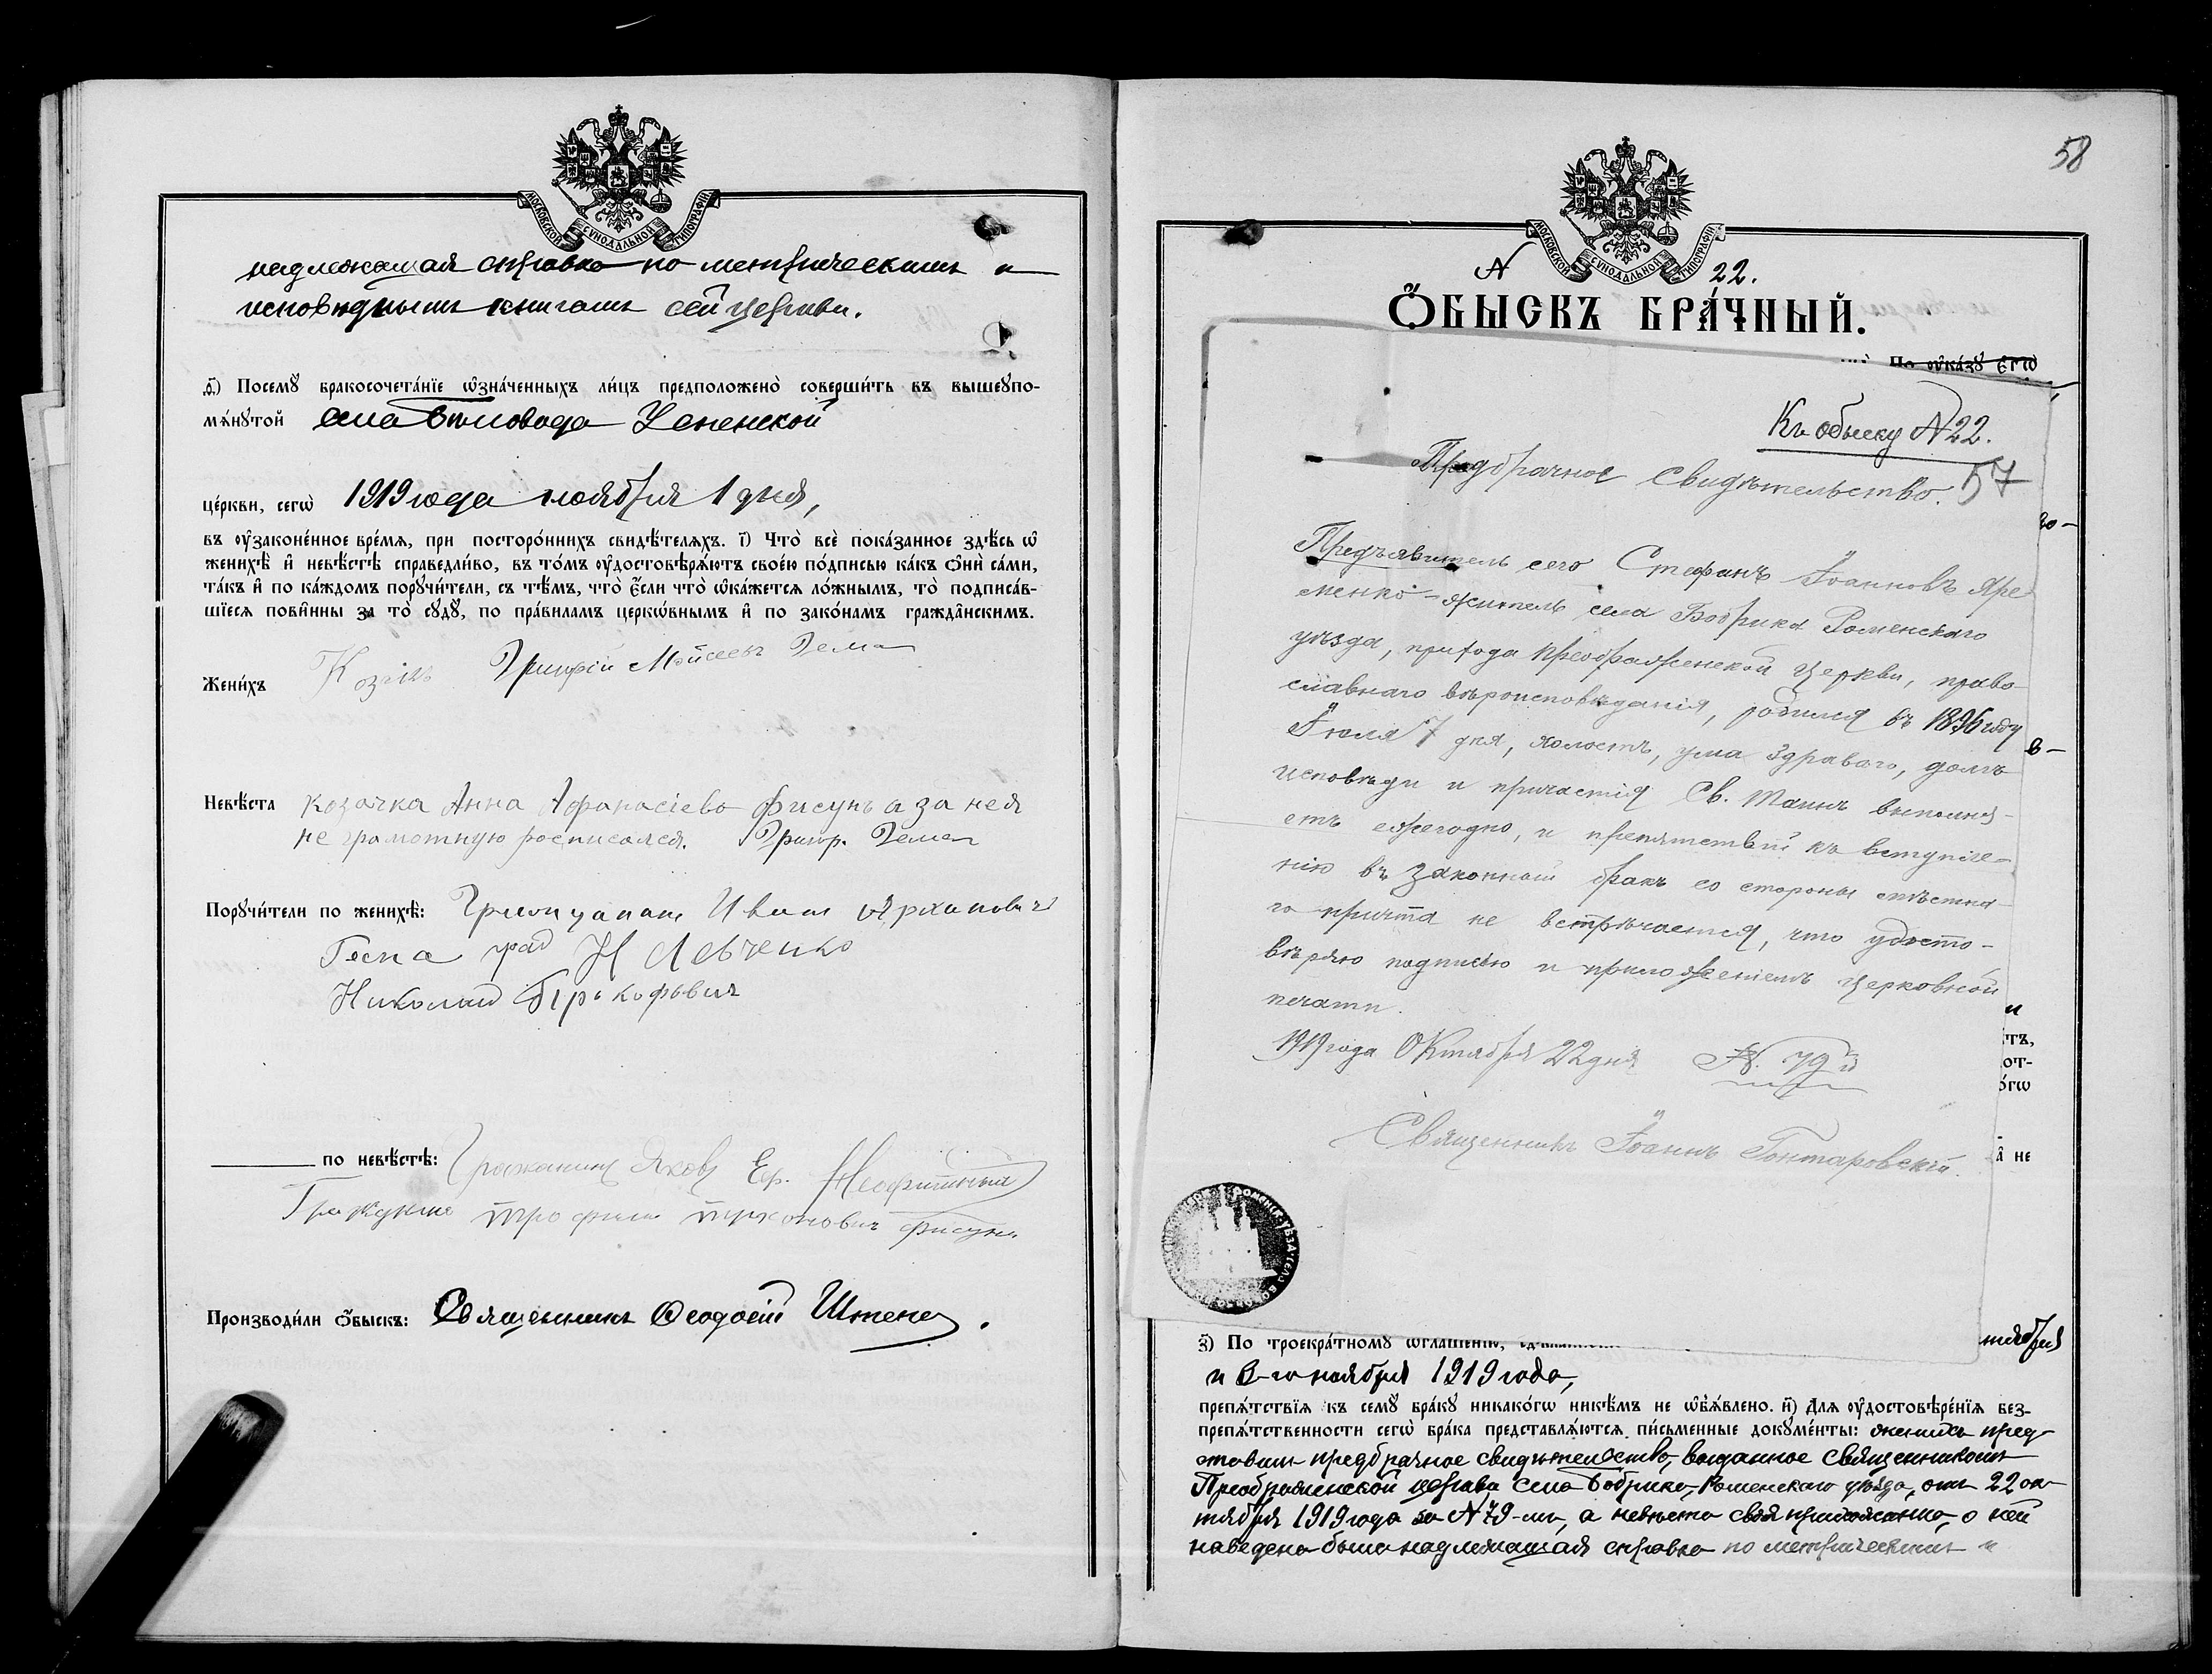 МОСКОВСКОЙ СѴНОДАЛЬНОЙ ТИПОГРАФІИ
надлежащая справка по метрическимъ и
исповѣднымъ книгамъ сей церкви.
ѳ҃) Посемꙋ бракосочета́нїе ѡ҆зна́ченныхъ ли́цъ предположено̀ соверши́ть въ вышеꙋпо-
мѧ́нꙋтой села Беловода Успенской
це́ркви, сегѡ̀ 1919 года ноября 1 дня,
въ ᲂу҆законе́нное вре́мѧ, при посторо́ннихъ свидѣ́телѧхъ. і҃) Что̀ всѐ пока́занное здѣ́сь ѡ҆
женихѣ̀ и҆ невѣ́стѣ справедли́во, въ то́мъ ᲂу҆достовѣрѧ́ютъ свое́ю по́дписью ка́къ ѻ҆нѝ са́ми,
та́къ и҆ по ка́ждомъ порꙋчи́тели, съ тѣ́мъ, что̀ є҆́сли что̀ ѡ҆ка́жетсѧ ло́жнымъ, то̀ подписа́в-
шїесѧ пови́нны за то̀ сꙋдꙋ̀, по пра́виламъ церко́внымъ и҆ по зако́намъ гражда̑нскимъ.
Жени́хъ Козакъ Григрій Мойсеевъ Гема
Невѣ́ста козачка Анна Афанасіева Фисунъ а за нея
не грамотную росписался. Григр. Гема
Порꙋчи́тели по женихѣ̀: Иванъ
Н Левченко
Николай Пркофьвич
по невѣ́стѣ: Гражанинъ Яковъ Ер.
Гражданин Трофим Фисун.
Производи́ли ѻ҆́быскъ: Священникъ Ѳеодосій Штепа.
58
МОСКОВСКОЙ СѴНОДАЛЬНОЙ ТИПОГРАФІИ
N 22.
Ѻ҆́БЫСКЪ БРА́ЧНЫЙ.
По ᲂу҆ка́зꙋ є҆гѡ̀
Къ обыску N 22.
Предбрачное Свидѣтельство. 57
го-
Предъявитель сего Стефанъ Іоанновъ Яре-
менко - житель села Бобрика Роменскаго
уѣзда, прихода Преображенской церкви, право-
славнаго вѣроисповѣданія, родился въ 1896 году
Іюля 7 дня, холостъ, ума здраваго, долгъ
в-
исповѣди и причастія Св. Таинъ выполня-
етъ ежегодно, и препятствий къ вступле-
нію въ законный бракъ со стороны мѣстна-
го причта не встрѣчается, что удосто-
вѣряю подписью и приложеніемъ церковной
печати.
и
тъ,
от-
о́гѡ
1919 года Октября 22 дня N. 79й
Священникъ Іоаннъ Гонтаровскій.
и҆ не
з҃) По троекра́тномꙋ ѡ҆глаше́нїю, тября
и 3-го ноября 1919 года,
препѧ́тствїѧ къ семꙋ̀ бра́кꙋ никако́гѡ никѣ́мъ не ѡ҆бъѧ́влено. и҃) Длѧ ᲂу҆достовѣре́нїѧ без-
препѧ́тственности сегѡ̀ бра́ка представлѧ́ютсѧ пи́сьменные докꙋме́нты: женихъ пред-
ставилъ предбрачное свидѣтельство, выданное священникомъ
Преображенской церкви села Бобрика, Роменскаго уѣзда, отъ 22 ок-
тября 1919 года за N 79-мъ, а невѣста своя прихожанка, о ней
наведена была надлежащая справка по метрическимъ и